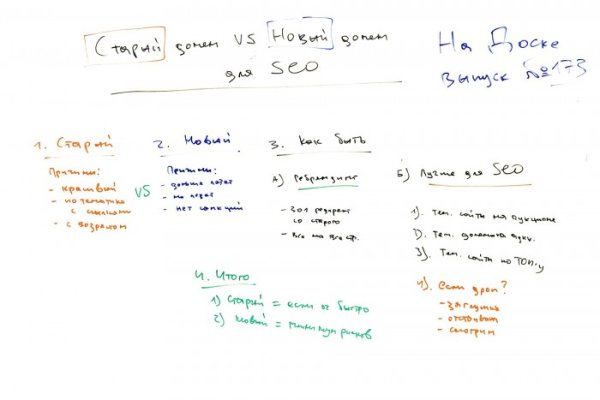 Старый домен VS Новый домен
для SEO
На Доске
выпуск №173
1. Старый
Причины:
- красивый
- по тематике
с ссылками
- с возрастом
VS
2. Новый
Причины:
- дольше
- не
- нет санкций
3. Как быть
А) Ребрендинг
- 301 редирект
со старого
- Все на все стр.
Б) Лучше для SEO
1). Тем. сайты на аукционе
2). Тем. домена аукц.
3). Тем. сайты по ТОП-у
4). если дроп?
- заглушка
- отстойник
- смотрим
4. Итого
1) Старый = если оч быстро
2) Новый = минимум рисков